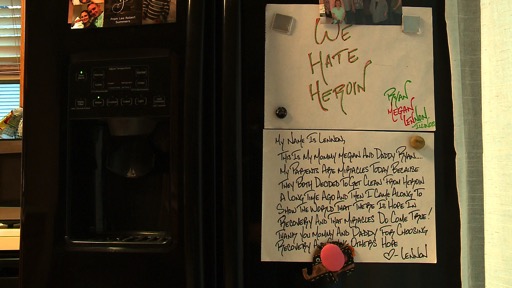 We
Hate
Heroin
Ryan
Megan
Lennon
My Name Is Lennon,
This Is My Mommy Megan And Daddy Ryan...
My Parents Are Miracles Today Because
They Both Decided To Get Clean From Heroin
A Long Time Ago And Then I Came Along To
Show The World That There Is Hope In
Recovery And That Miracles Do Come True!
Thank You Mommy And Daddy For Choosing
Recovery And Others Hope
♡- Lennon